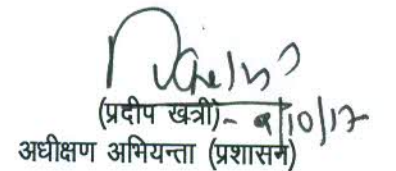 (प्रदीप खत्री)- 9/10/17
अधीक्षण अभियन्ता (प्रशासन)